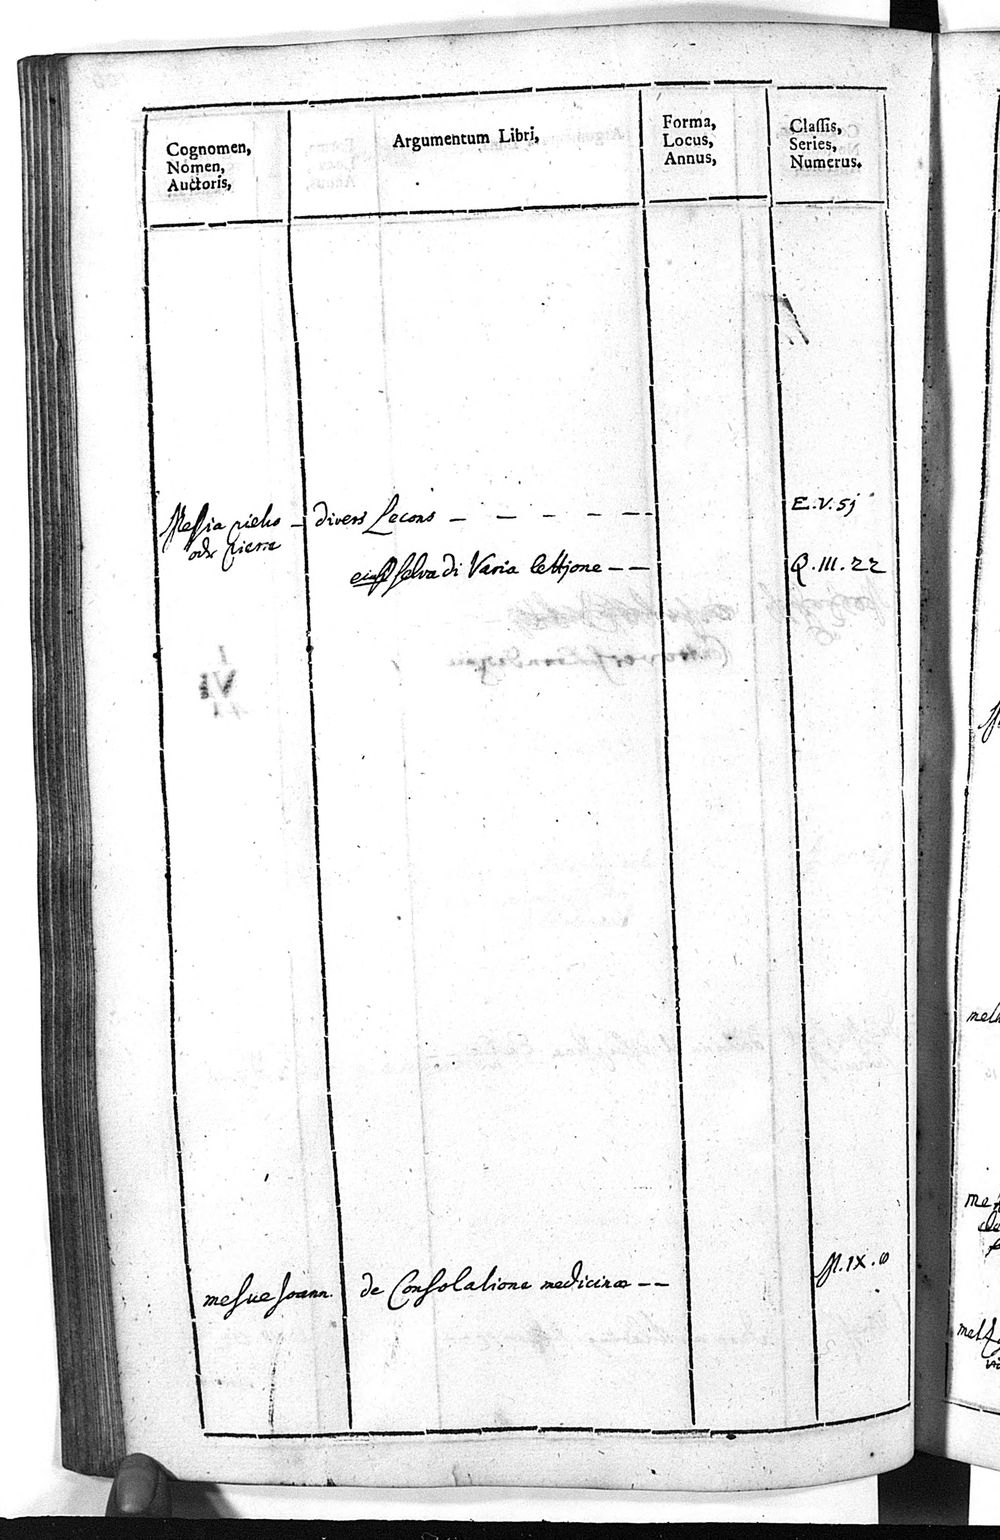 Cognomen,
Nomen,
Auctoris,
Argumentum Libri,
Forma,
Locus,
Annus,
Classis,
Series,
Numerus.
Messia pietro – divers Lecons – – – – – – E.V.5j
odr pierre
eiusd selva di Varia lettjone – – Q.III.22
mesue Joann. de Consolatione medicinæ – – M.IX.